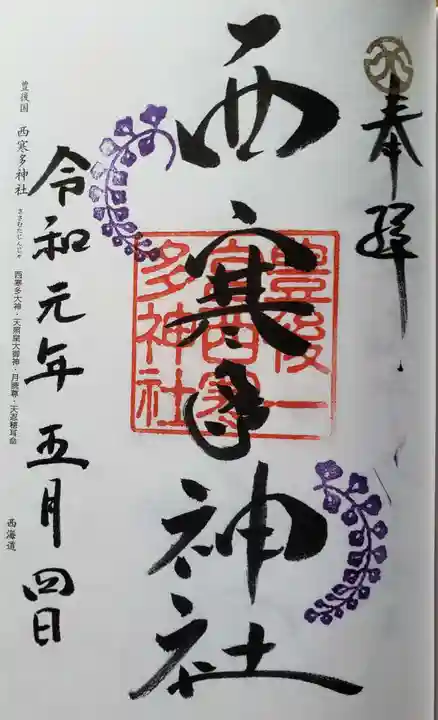 奉拝
西寒多神社
豊後一
宮西寒
多神社
令和元年五月四日
豊後国 西寒多神社 ささむたじんじゃ 西寒多大神・天照皇大御神・月読尊・天忍穂耳命 西海道